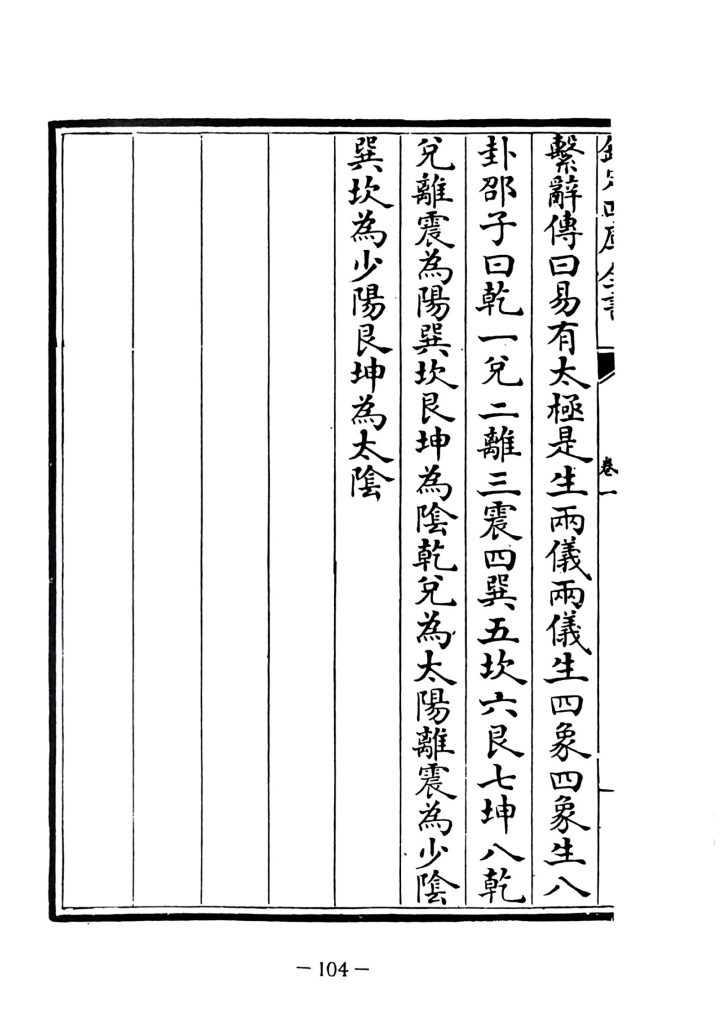 欽定四庫全書
卷一
繫辭傳曰易有太極是生兩儀兩儀生四象四象生八
卦邵子曰乾一兌二離三震四巽五坎六艮七坤八乾
兌離震為陽巽坎艮坤為陰乾兌為太陽離震為少陰
巽坎為少陽艮坤為太陰
— 104 —